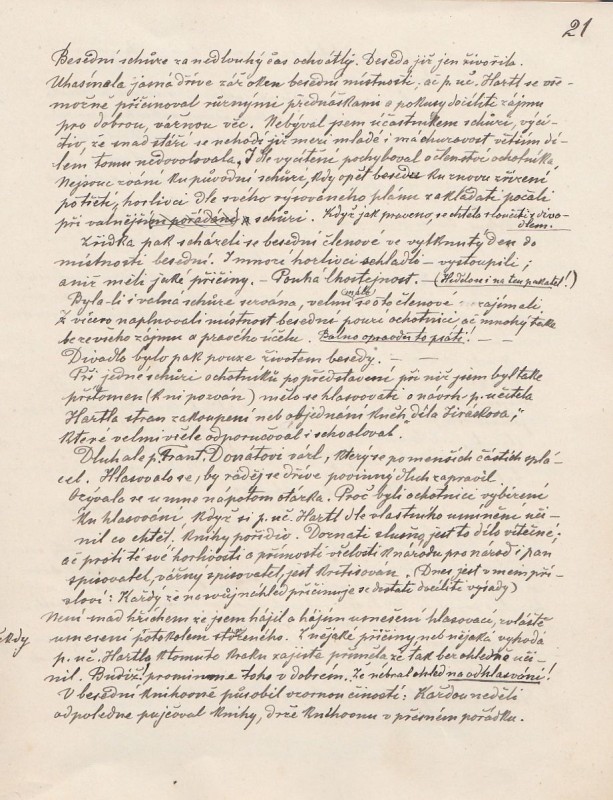 21
Besední schůze za nedlouhý čas ochvátly. Beseda již jen živořila.
Uhasínala jasná dříve zář oken besední místnosti; ač p. uč. Hartl se vše-
možně přičinoval různými přednáškami a pokusy docíliti zájmu
pro dobrou, vážnou věc. Nebýval jsem účastníkem schůzí, vycí-
tiv, že snad stáří se nehodí již mezi mladé i má churavost větším dí-
lem tomu nedovolovala. I dle vycítění pochyboval o členství ochotníka
Nejsouc zváni ku původní schůzi, kdy opět besedu ku znovu zřízení
potřetí, horlivci dle svého rysovaného plánu zakládati počali
při valné schůzi. Když jak praveno, se chtěla sloučiti s diva-
dlem.
Zřídka pak scházeli se besední členové ve vytknutý den do
místnosti besední. I mnozí horlivci schladli – vystoupili;
aniž měli jaké příčiny. – Pouhá lhostejnost. – (Heděloui na ten pakatel!)
Byla-li i valná schůze svolána, velmi málo se o to členové zajímali
Z více naplňovali místnost besední pouzí ochotníci ač mnohý také
bez všeho zájmu a pravého účelu. Bolno opravdu to psáti! – –
Divadlo bylo pak pouze životem besedy. – –
Při jedné schůzi ochotníků po představení při níž jsem byl také
přítomen (k ní pozván) mělo se hlasovati o návrh p. učitele
Hartla stran zakoupení neb objednání knih „děla Jiráskova",
které velmi vřele odporučoval i schvaloval.
Dluh ale p. Frant. Donátovi vázl, který se po menších částích splá-
cel. Hlasovalo se, by raděj se dříve povinný dluh zapravil.
Ozývalo se u mne nápotom otázka. Proč byli ochotníci vybízeni
ku hlasování, když si p. uč. Hartl dle vlastního umínění uči-
nil co chtěl. Knihy pořídiv. Doznati slušno, jest to dílo vítečné;
ač proti té své horlivosti a přímosti vřelosti k národu pro národ i pan
spisovatel, vážný spisovatel, jest kritisován. (Dnes jest v mém pří-
sloví: Každý že na svůj náhled přičinuje se dostati docíliti výsady)
Není snad hříchem že jsem hájil a hájím usnešení hlasovací, zvláště
někdy usnesení protokolem stvrzeného. I nějaké příčiny neb nějaká výhoda
p. uč. Hartla k tomuto kroku zajisté přiměla že tak bezohledně uči-
nil. Budiž! promineme toho v dobrém, že nebral ohled na odhlasování!
V besední knihovně působil vzornou činností: Každou neděli
odpoledne pujčoval knihy, drže knihovnu v přesném pořádku.